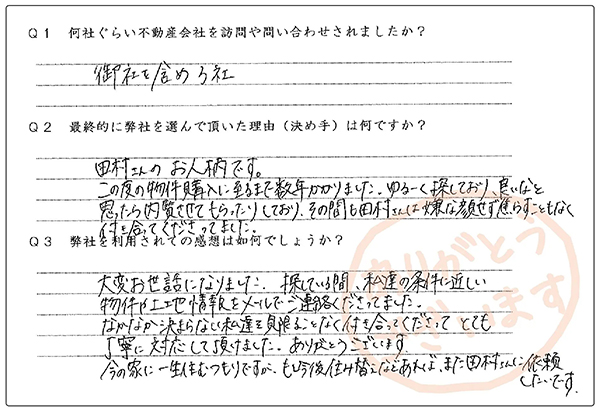 Q1 何社ぐらい不動産会社を訪問や問い合わせされましたか?
御社を含め3社
Q2 最終的に弊社を選んで頂いた理由(決め手)は何ですか?
田村さんのお人柄です。
この度の物件購入に至るまで数年かかりました。ゆるーく探しており、良いなと
思ったら内覧させてもらったりしており、その間も田村さんは嫌な顔せず焦らすこともなく
付き合ってくださってました。
Q3 弊社を利用されての感想は如何でしょうか?
大変お世話になりました。探している間、私達の条件に近しい
物件や土地情報をメールでご連絡くださってました。
なかなか決まらない私達を見限ることなく付き合ってくださって とても
丁寧に対応して頂けました。ありがとうございます。
今の家に一生住むつもりですが、もし今後住み替えなどあれば、また田村さんに依頼
したいです。
ありがとう
ございます